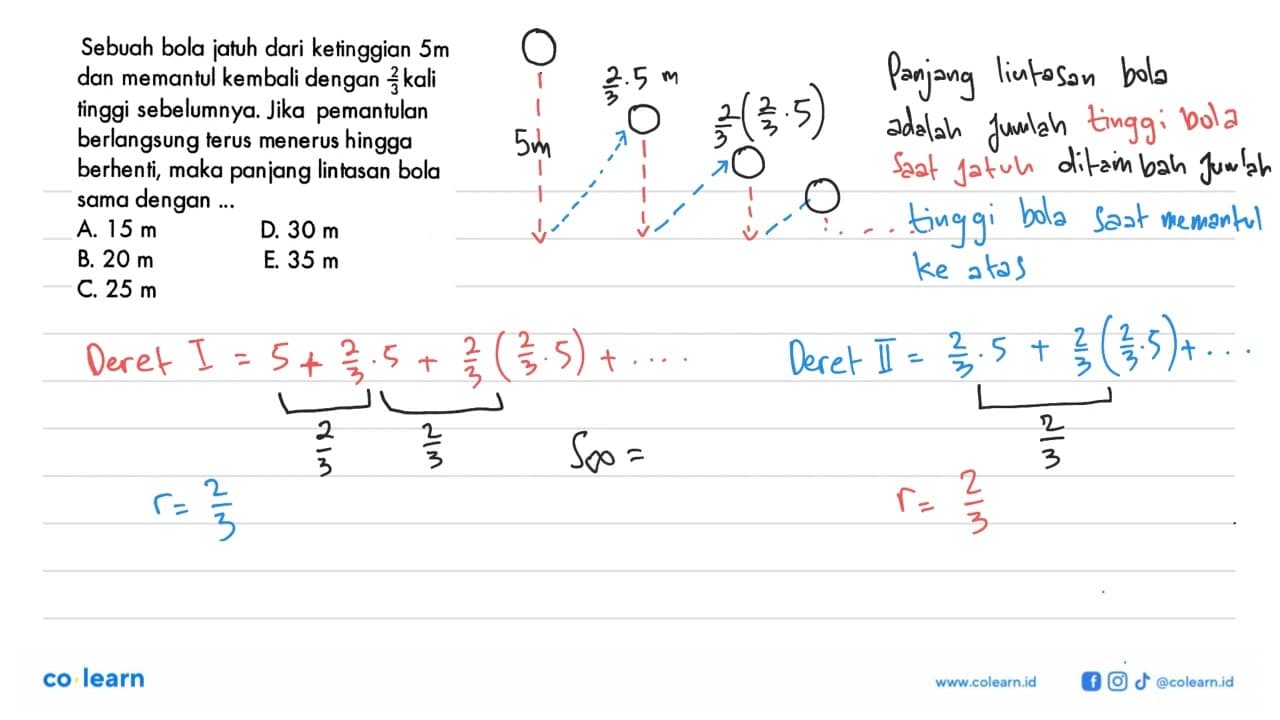 Sebuah bola jatuh dari ketinggian 5m
dan memantul kembali dengan 2/3 kali
tinggi sebelumnya. Jika pemantulan
berlangsung terus menerus hingga
berhenti, maka panjang lintasan bola
sama dengan ...
A. 15 m D. 30 m
B. 20 m E. 35 m
C. 25 m
5m
2/3 . 5 m
2/3 (2/3 . 5)
Panjang lintasan bola
adalah jumlah tinggi bola
saat jatuh ditambah jumlah
.... tinggi bola saat memantul
ke atas
Deret I = 5 + 2/3 . 5 + 2/3 (2/3 . 5) + ....
2/3 2/3
r = 2/3
S∞ =
Deret II = 2/3 . 5 + 2/3 (2/3 . 5) + ...
2/3
r = 2/3
co learn
www.colearn.id
@colearn.id